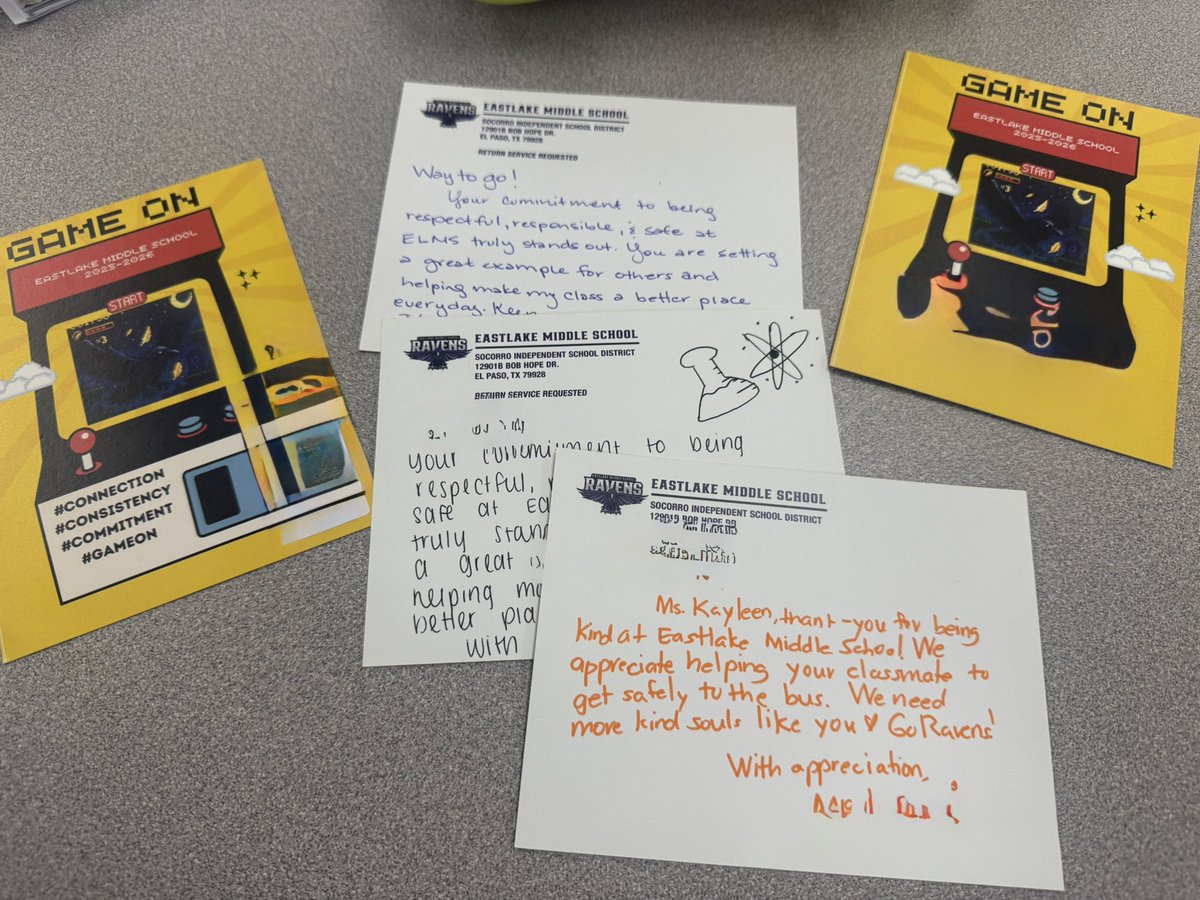 GAME ON
EASTLAKE MIDDLE SCHOOL
2025-2026
START
#CONNECTION
#CONSISTENCY
#COMMITMENT
#GAMEON
RAVENS
EASTLAKE MIDDLE SCHOOL
SOCORRO INDEPENDENT SCHOOL DISTRICT
12901B BOB HOPE DR.
EL PASO, TX 79928
RETURN SERVICE REQUESTED
Way to go!
Your commitment to being
respectful, responsible, & safe at
ELMS truly stands out. You are setting
a great example for others and
helping make my class a better place
everyday. Keep
RAVENS
EASTLAKE MIDDLE SCHOOL
SOCORRO INDEPENDENT SCHOOL DISTRICT
12901B BOB HOPE DR.
EL PASO, TX 79928
RETURN SERVICE REQUESTED
your commitment to being
respectful,
safe at
truly
a great
helping
better
with
RAVENS
EASTLAKE MIDDLE SCHOOL
SOCORRO INDEPENDENT SCHOOL DISTRICT
12901B BOB HOPE DR.
Ms. Kayleen, thank-you for being
kind at Eastlake Middle School! We
appreciate helping your classmate to
get safely to the bus. We need
more kind souls like you ♥ Go Ravens!
With appreciation,
GAME ON
EASTLAKE MIDDLE SCHOOL
2025-2026
START